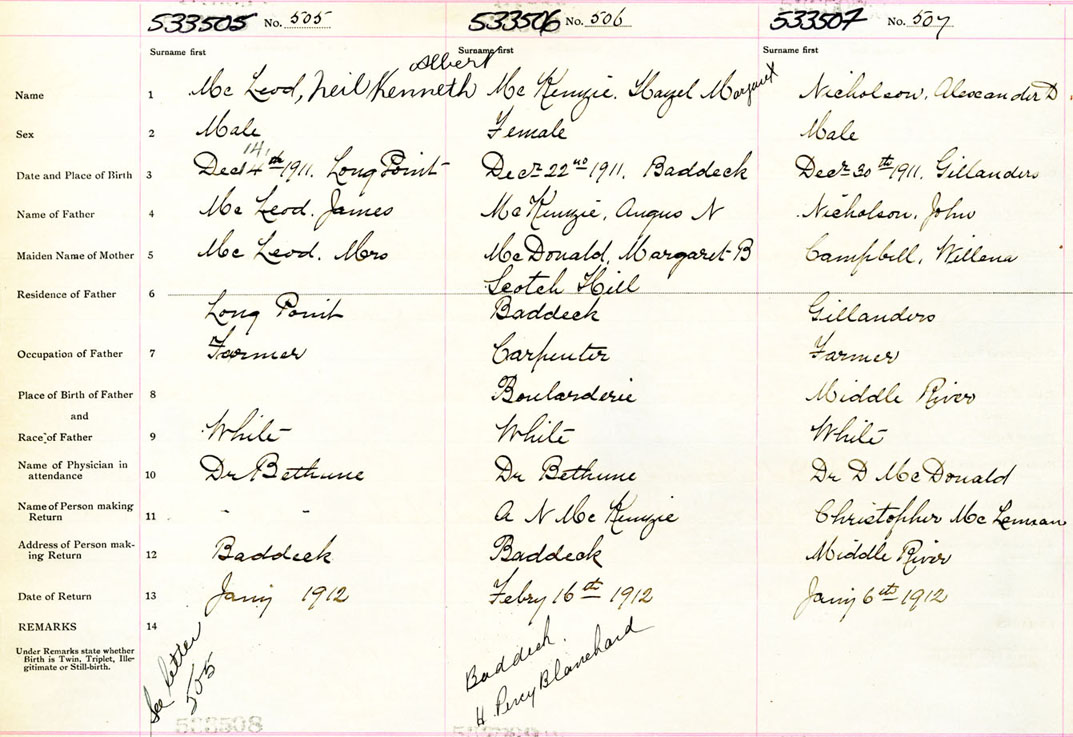 533505 No. 505 533506 No. 506 533507 No. 507
Surname first Surname first Surname first
Albert
Name 1 Mc Leod, Neil Kenneth Mc Kenzie. Hazel Margaret Nicholson, Alexander D
Sex 2 Male Female Male
14
Date and Place of Birth 3 Dec 4th 1911. Long Point Decr 22nd 1911. Baddeck Decr 30th 1911. Gillanders
Name of Father 4 Mc Leod. James Mc Kenzie, Angus N Nicholson. John
Maiden Name of Mother 5 Mc Leod. Mrs McDonald, Margaret B Campbell, Willena
Scotch Hill
Residence of Father 6
Long Point Baddeck Gillanders
Occupation of Father 7 Farmer Carpenter Farmer
Place of Birth of Father 8 Boularderie Middle River
and
Race of Father 9 White White White
Name of Physician in
attendance 10 Dr Bethune Dr Bethune Dr D McDonald
Name of Person making
Return 11 " " A N Mc Kenzie Christopher Mc Lennan
Address of Person mak-
ing Return 12 Baddeck Baddeck Middle River
Date of Return 13 Jany 1912 Febry 16th 1912 Jany 6th 1912
REMARKS 14
Under Remarks state whether
Birth is Twin, Triplet, Ille-
gitimate or Still-birth.
See letter
505
Baddeck.
H. Percy Blanchard
533508